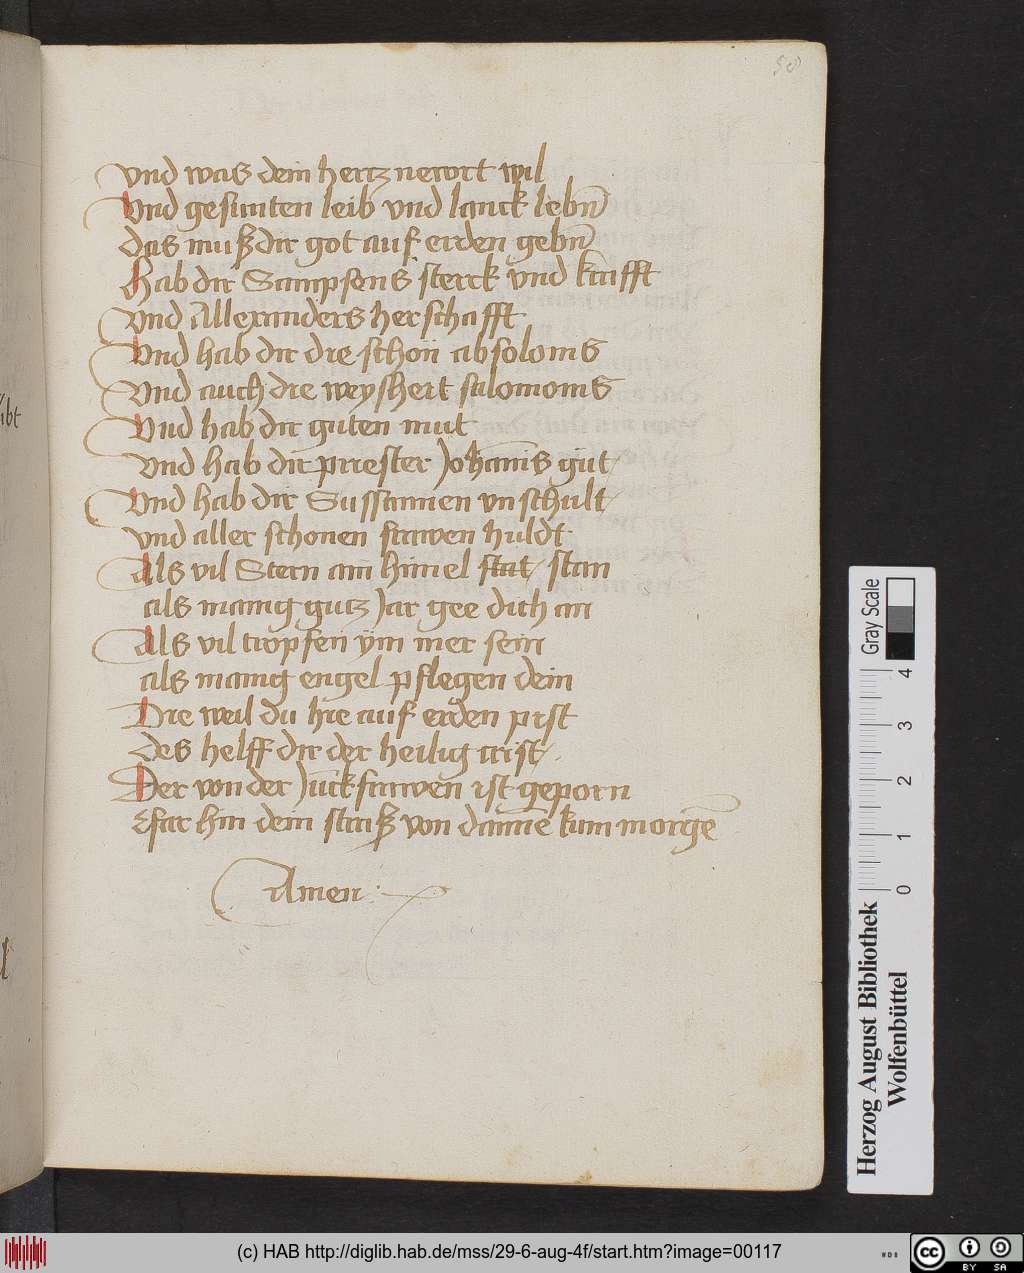 58
vnd was dein hertz newrt wil
Vnd gesunten leib vnd lanck lebñ
das muß dir got auf erden gebñ
Hab dir Sampsons sterck vnd krafft
vnd Allexanders herschafft
Vnd hab dir die schon absoloms
vnd auch die weysheit salomoms
Vnd hab dir guten mut
vnd hab dir priester Johãnis gut
Vnd hab dir Sussannen vnschult
vnd aller schonen frawen huldt
Als vil Stern am himel stat stan
als manig gutz Jar gee dich an
Als vil tropfen ym mer sein
als manig engel pflegen dein
Die weil du hie auf erden pist
des helff dir der heilig crist
Der von der Junckfrawen ist geporn
far hin dein straß von danne kum morgē
Amen
Herzog August Bibliothek
Wolfenbüttel
0 1 2 3 4
Gray Scale
(c) HAB http://diglib.hab.de/mss/29-6-aug-4f/start.htm?image=00117
cc BY SA